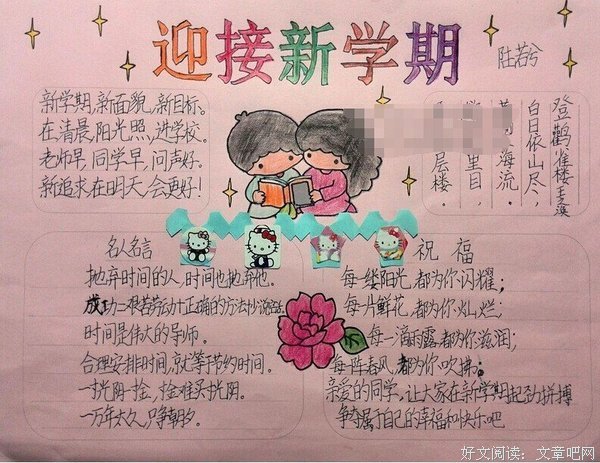 迎接新学期
陆若兮
新学期,新面貌,新目标。
在清晨,阳光照,进学校。
老师早,同学早,问声好。
新追求,在明天,会更好!
登鹳雀楼 王之涣
白日依山尽,
海流。
里目,
层楼。
名人名言
抛弃时间的人,时间也抛弃他。
成功=艰苦劳动+正确的方法+少说空话
时间是伟大的导师。
合理安排时间,就等于节约时间。
一寸光阴一寸金,寸金难买寸光阴。
一万年太久,只争朝夕。
祝福
每一缕阳光,都为你闪耀,
每一片鲜花,都为你灿烂;
每一滴雨露,都为你滋润;
每一阵春风,都为你吹拂。
亲爱的同学,让大家在新学期起劲拼搏
争取属于自己的幸福和快乐吧
好文阅读:文章吧网